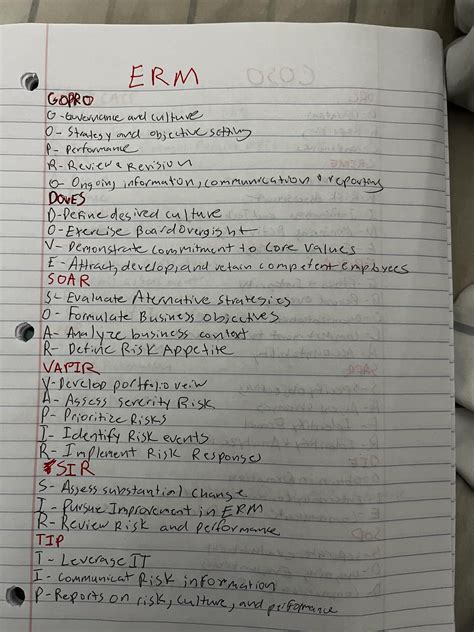 ERM
GOPRO
G-Governance and culture
O-Strategy and objective setting
P-Performance
R-Review & Revision
O-Ongoing information, communication & reporting
DOVES
D-Define desired culture
O-Exercise Board Overgisht
V-Demonstrate commitment to Core values
E-Attract, develop, and retain competent employees
SOAR
S-Evaluate Alternative strategies
O-Formulate Business objectives
A-Analyze business context
R-Define Risk Appetite
VAPIR
V-Develop portfolio veiw
A-Assess severity Risk
P-Prioritize Risks
I-Identify Risk events
R-Implement Risk Responses
SIR
S-Assess substantial change
I-Pursue Improvement in ERM
R-Review Risk and performance
TIP
T-Leverage IT
I-Communicat Risk information
P-Reports on risk, culture, and performance